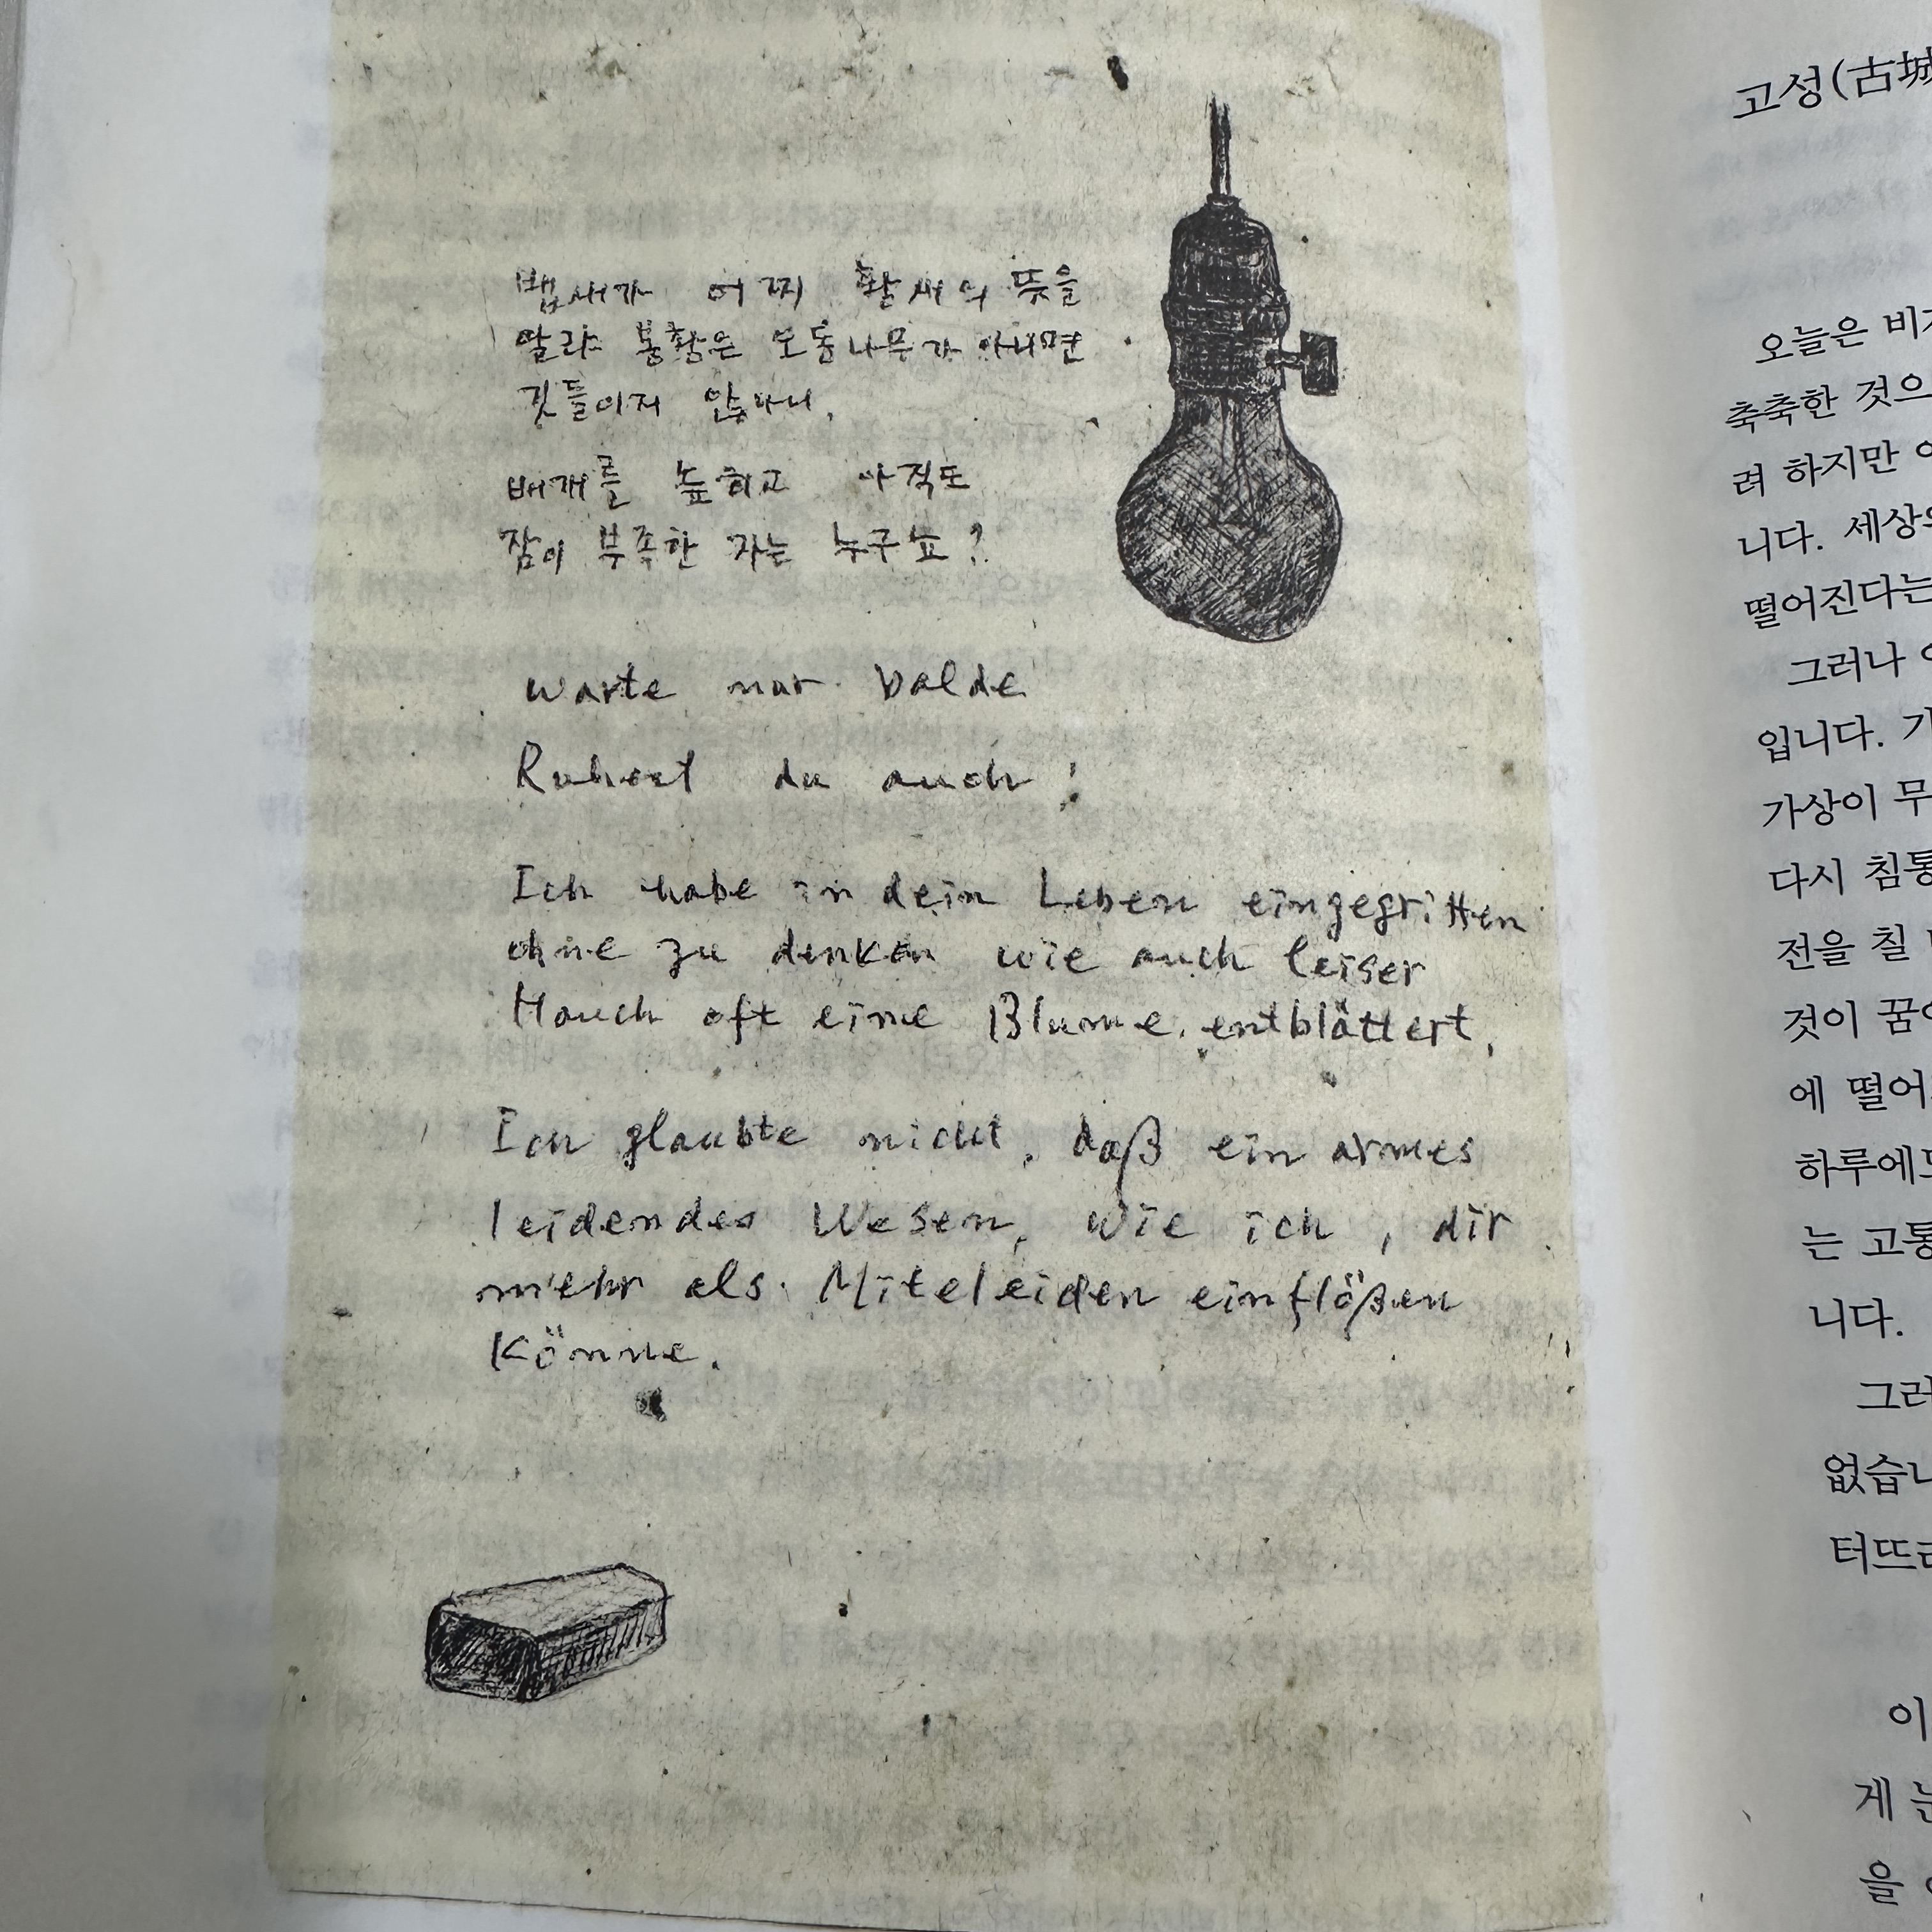 뱁새가 어찌 황새의 뜻을
알랴 봉황은 오동나무가 아니면
깃들이지 않나니,
베개를 높히고 아직도
잠이 부족한 자는 누구뇨?
warte nur balde
Ruhest du auch!
Ich habe in dein Leben eingegriffen
ohne zu denken wie auch leiser
Hauch oft eine Blume entblättert,
Ich glaubte nicht, daß ein armes
leidendes Wesen, wie ich, dir
mehr als Miteleiden einflößen
Könne.
고성(古城
오늘은 비가
축축한 것으
려 하지만
니다. 세상의
떨어진다는
그러나
입니다.
가상이 무
다시 침통
전을 칠
것이
에
하루에도
는 고통
니다.
그러
없습니
터뜨리
이
게
을